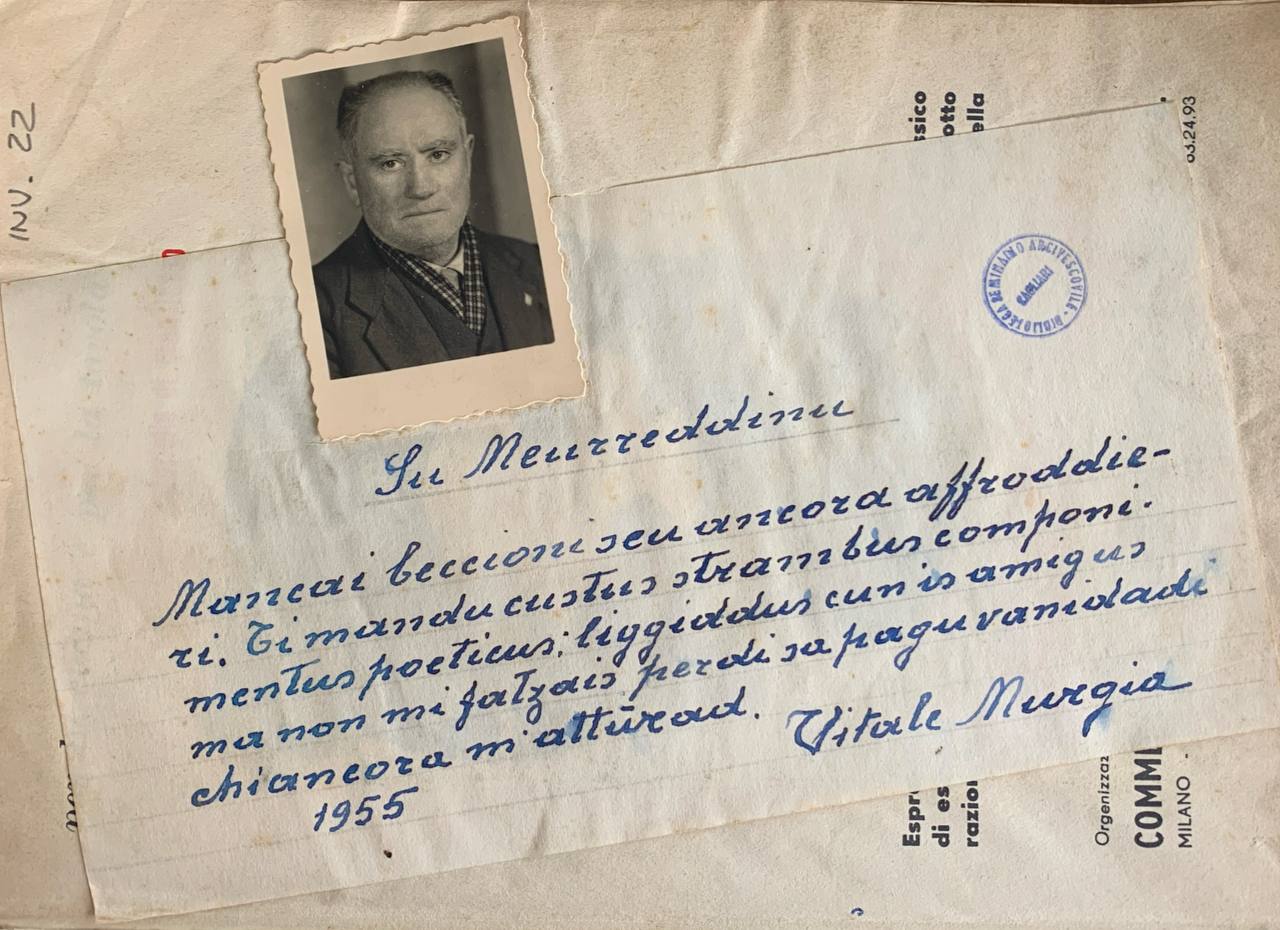 INV. 22
ssico
otto
ella
63.24.93
BIBLIOTECA SEMINARIO ARCIVESCOVILE -
CAGLIARI
Su Meurreddinu
Mancai beccioni seu ancora affroddie-
ri. Ti mandu custus strambus componi.
mentus poeticus; liggiddus cun is amigus
ma non mi fatzais perdi sa pagu vanidadi
chi ancora m'attūrad.
Vitale Murgia
1955
Espr
di es
razion
Orgenizza
COMME
MILANO -